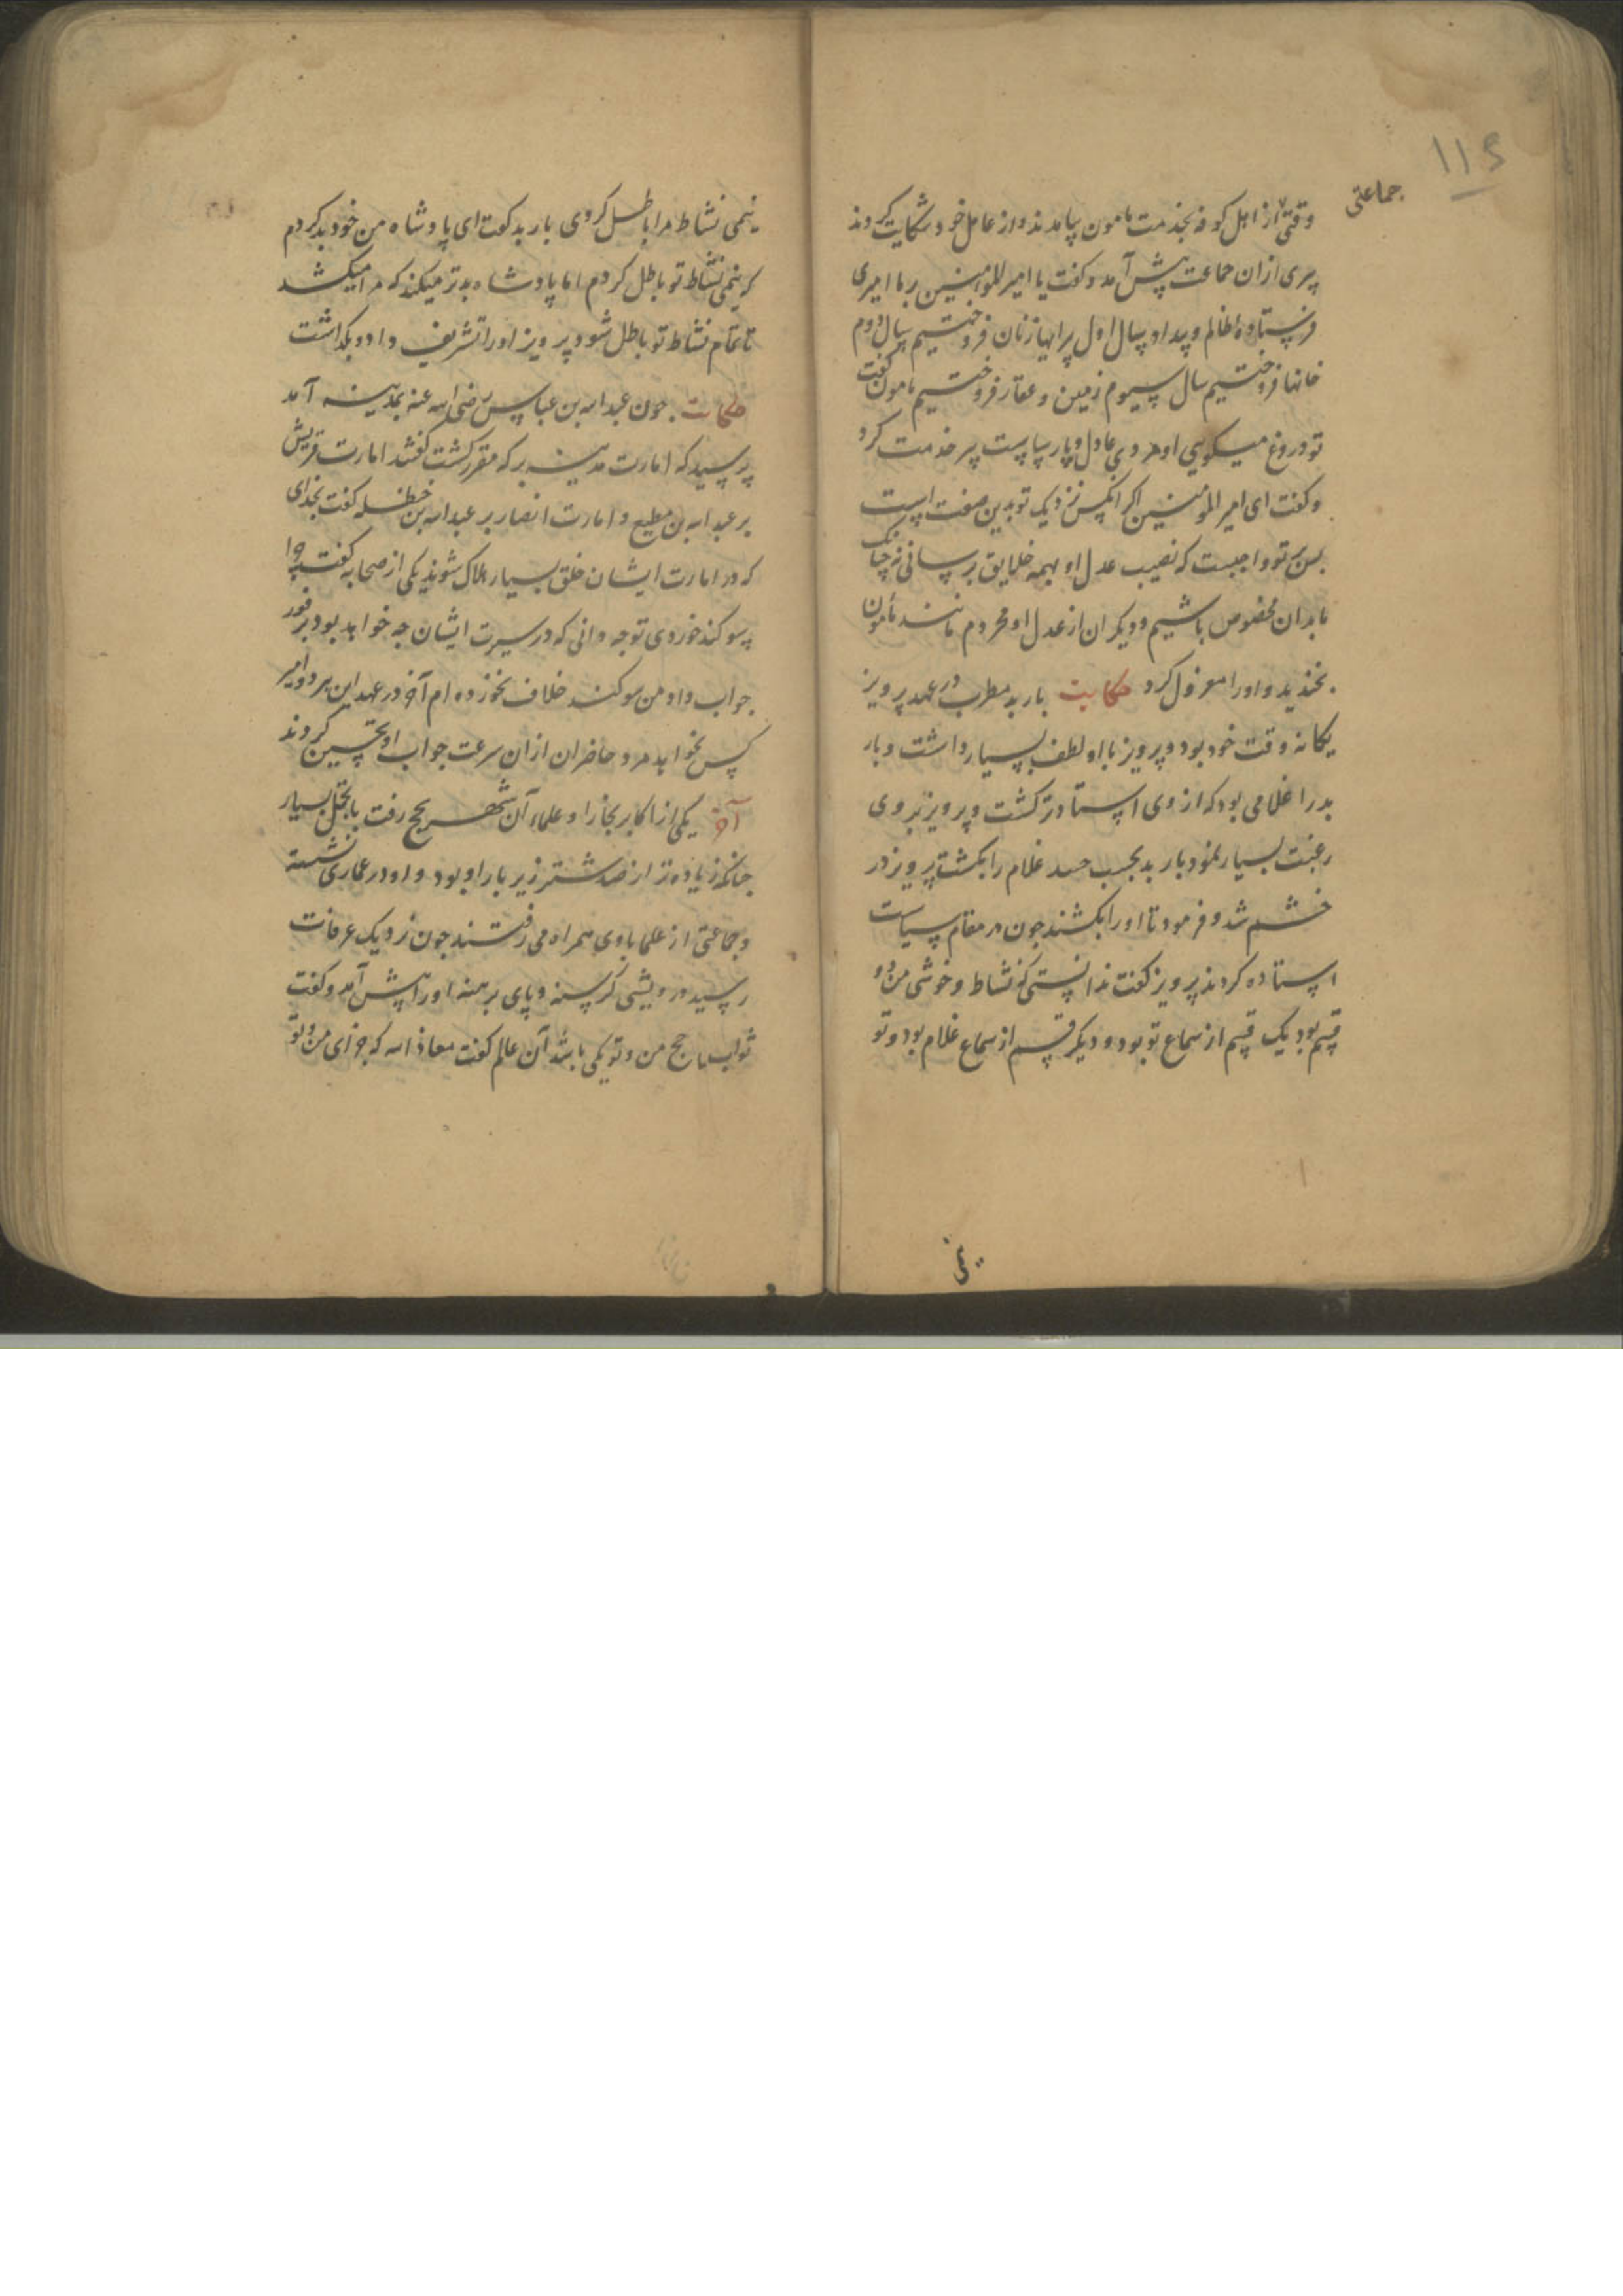 ۱۱۵
جماعتی
وقتی از اهل کوفه بخدمت مامون بیامدند و از عامل خود شکایت کردند
پیری ازان جماعت پیش آمد و کفت یا امیر المؤمنین بر ما امیری
فرستاده ظالم و بیداد بسال اول پیرایهاء زنان فروختیم بسال دوم
خانها فروختیم سال سیوم زمین و عقار فروختیم مامون کفت
تو دروغ میکویی او مردی عادل و پارساست پیر خدمت کرد
و کفت ای امیر المؤمنین اکر انکس نزدیک تو بدین صفت است
بس بر تو واجبست که نصیب عدل او بهمه خلایق برسانی نه چنانک
ما بدان مخصوص باشیم و دیکران از عدل او محروم مانند مأمون
بخندید و اورا معزول کرد حکایت باربد مطرب در عهد پرویز
یکانه وقت خود بود و پرویز با او لطف بسیار داشت و بار
بد را غلامی بود که از وی استادتر کشت و پرویز بروی
رغبت بسیار نمود باربد بجسب حسد غلام را بکشت پرویز در
خشم شد و فرمود تا اورا بکشند جون در مقام سیاست
استاده کردند پرویز کفت ندانستی که نشاط و خوشی من دو
قسم بود یک قسم از سماع تو بود و دیکر قسم از سماع غلام بود و تو
نیمی
نیمی نشاط مرا باطل کردی باربد کفت ای پادشاه من خود بد کردم
که نیمی نشاط تو باطل کردم اما پادشاه بدتر میکند که مرا میکشد
تا تمام نشاط تو باطل شود پرویز اورا تشریف داد و بکذاشت
حکایت جون عبد الله بن عباس رضی الله عنه بمدینه آمد
پرسید که امارت مدینه بر که مقرر کشت کفتند امارت قریش
بر عبد الله بن مطیع و امارت انصار بر عبد الله بن حنظله کفت بخدای
که در امارت ایشان خلق بسیار هلاک شوند یکی از صحابه کفت چرا
سوکند خوردی تو جه دانی که در سیرت ایشان جه خواهد بود بر فور
جواب داد من سوکند خلاف نخورده ام آخر در عهد این هر دو امیر
کس نخواهد مرد حاضران ازان سرعت جواب او تحسین کردند
آخر یکی از اکابر بخارا و علماء آن شهر بحج رفت با تجمل بسیار
جنانکه زیاده تر از صد شتر زیر بار او بود و او در عماری نشسته
و جماعتی از علما با وی همراه می رفتند جون نزدیک عرفات
رسید درویشی کرسنه و پای برهنه اورا پیش آمد و کفت
ثواب ما حج من و تو یکی باشد آن عالم کفت معاذ الله که جزای من و تو